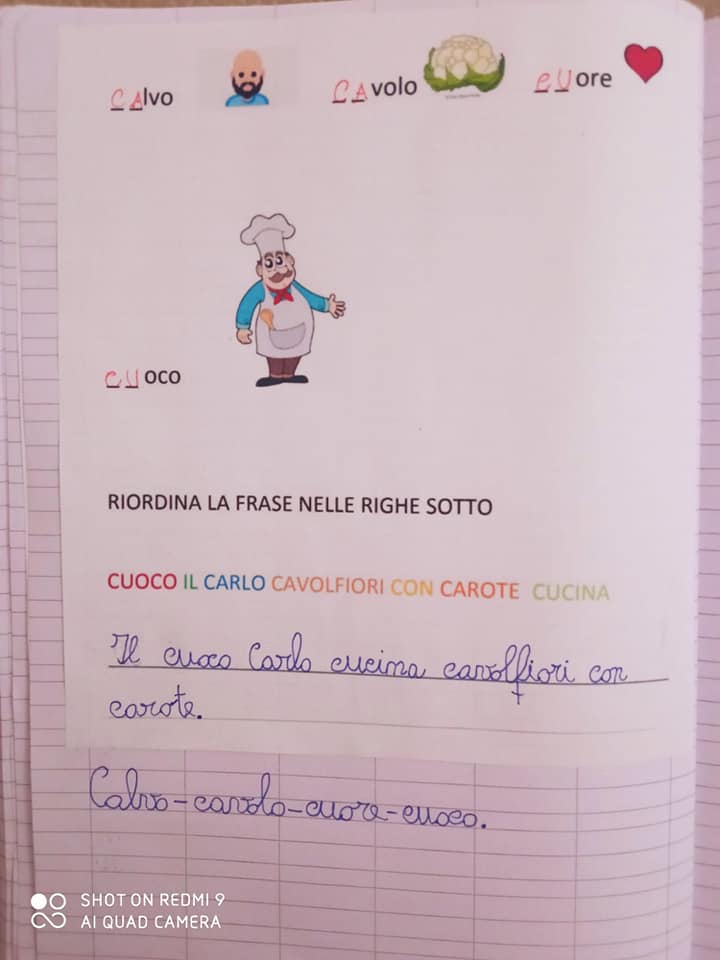 CAlvo CAvolo CUore
CUoco
RIORDINA LA FRASE NELLE RIGHE SOTTO
CUOCO IL CARLO CAVOLFIORI CON CAROTE CUCINA
Il cuoco Carlo cucina cavolfiori con
carote.
Calvo-cavolo-cuore-cuoco.
SHOT ON REDMI 9
AI QUAD CAMERA